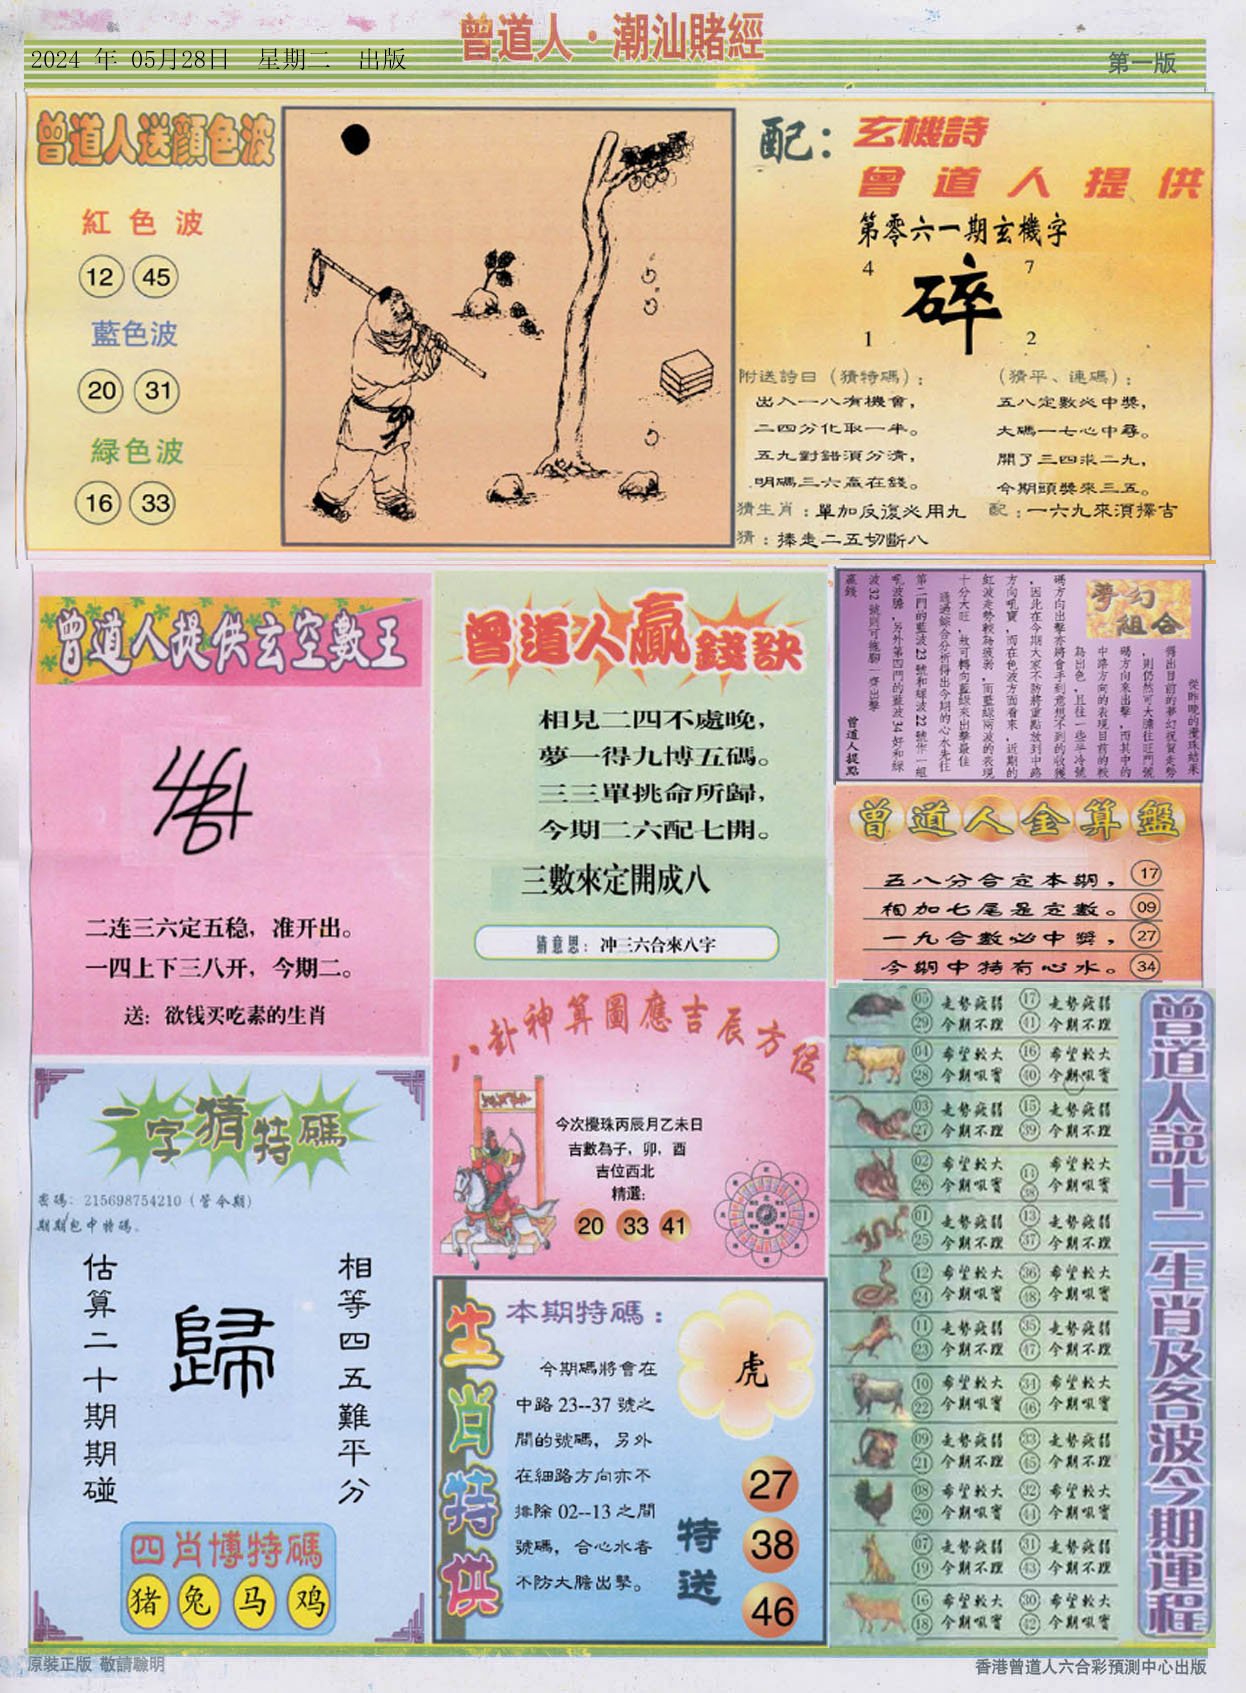 曾道人·潮汕賭經
2024 年 05月28日 星期二 出版
第一版
曾道人送顏色波
紅色波
12 45
藍色波
20 31
緑色波
16 33
配：玄機詩
曾道人提供
第零六一期玄機字
4 7
碎
1 2
附送詩日（猜特碼）：
出入一八有機會，
二四分化取一半。
五九對錯須分清，
明碼三六贏在錢。
（猜平、連碼）：
五八定數必中獎，
大碼一七心中尋。
開了三四求二九，
今期頭獎來三五。
猜生肖：單加反復必用九
配：一六九來須擇吉
猜：捧走二五切斷八
曾道人提供玄空數王
二连三六定五稳，准开出。
一四上下三八开，今期二。
送：欲钱买吃素的生肖
曾道人贏錢訣
相見二四不處晚，
夢一得九博五碼。
三三單挑命所歸，
今期二六配七開。
三數來定開成八
猜意思：冲三六合來八字
夢幻
組合
從昨晚的攪珠結果
得出目前的夢幻祝賀走勢
，則仍然可大膽往旺門號
碼方向來出擊，而其中的
中路方向的表現目前的較
為出色，且往一些半冷號
碼方向出擊亦將會手到意想不到的收穫
，因此在今期大家不防將重點放到中路
方向吼寶，而在色波方面看來，近期的
紅波走勢較為疲弱，而藍綠兩波的表現
十分大旺，故可轉向藍綠來出擊最佳
通過綜合分析得出今期的心水先往
第二門的藍波23號和綠波22號作一組
吼波膽，另外第四門的藍波34好和綠
波32號則可拖腳一齊出擊
贏錢
曾道人提點
曾道人金算盤
五八分合定本期， 17
相加七尾是定數。 09
一九合數必中獎， 27
今期中特有心水。 34
八卦神算圖應吉辰方位
今次攪珠丙辰月乙未日
吉數為子，卯，酉
吉位西北
精選：
20 33 41
一字猜特碼
密碼：215698754210（管今期）
期期包中特碼。
相等四五難平分
歸
估算二十期期碰
四肖博特碼
猪 兔 马 鸡
生肖特供
本期特碼：
今期碼將會在
中路 23--37 號之
間的號碼，另外
在細路方向亦不
排除 02--13 之間
號碼，合心水者
不防大膽出擊。
虎
特送
27
38
46
曾道人説十二生肖及各波今期運程
05 走勢疲弱 17 走勢疲弱
29 今期不理 41 今期不理
04 希望較大 16 希望較大
28 今期吼寶 40 今期吼寶
03 走勢疲弱 15 走勢疲弱
27 今期不理 39 今期不理
02 希望較大 14 希望較大
26 今期吼寶 38 今期吼寶
01 走勢疲弱 13 走勢疲弱
25 今期不理 37 今期不理
12 希望較大 36 希望較大
24 今期吼寶 48 今期吼寶
11 走勢疲弱 35 走勢疲弱
23 今期不理 47 今期不理
10 希望較大 34 希望較大
22 今期吼寶 46 今期吼寶
09 走勢疲弱 33 走勢疲弱
21 今期不理 45 今期不理
08 希望較大 32 希望較大
20 今期吼寶 44 今期吼寶
07 走勢疲弱 31 走勢疲弱
19 今期不理 43 今期不理
16 希望較大 30 希望較大
18 今期吼寶 42 今期吼寶
原裝正版 敬請聯明
香港曾道人六合彩預測中心出版